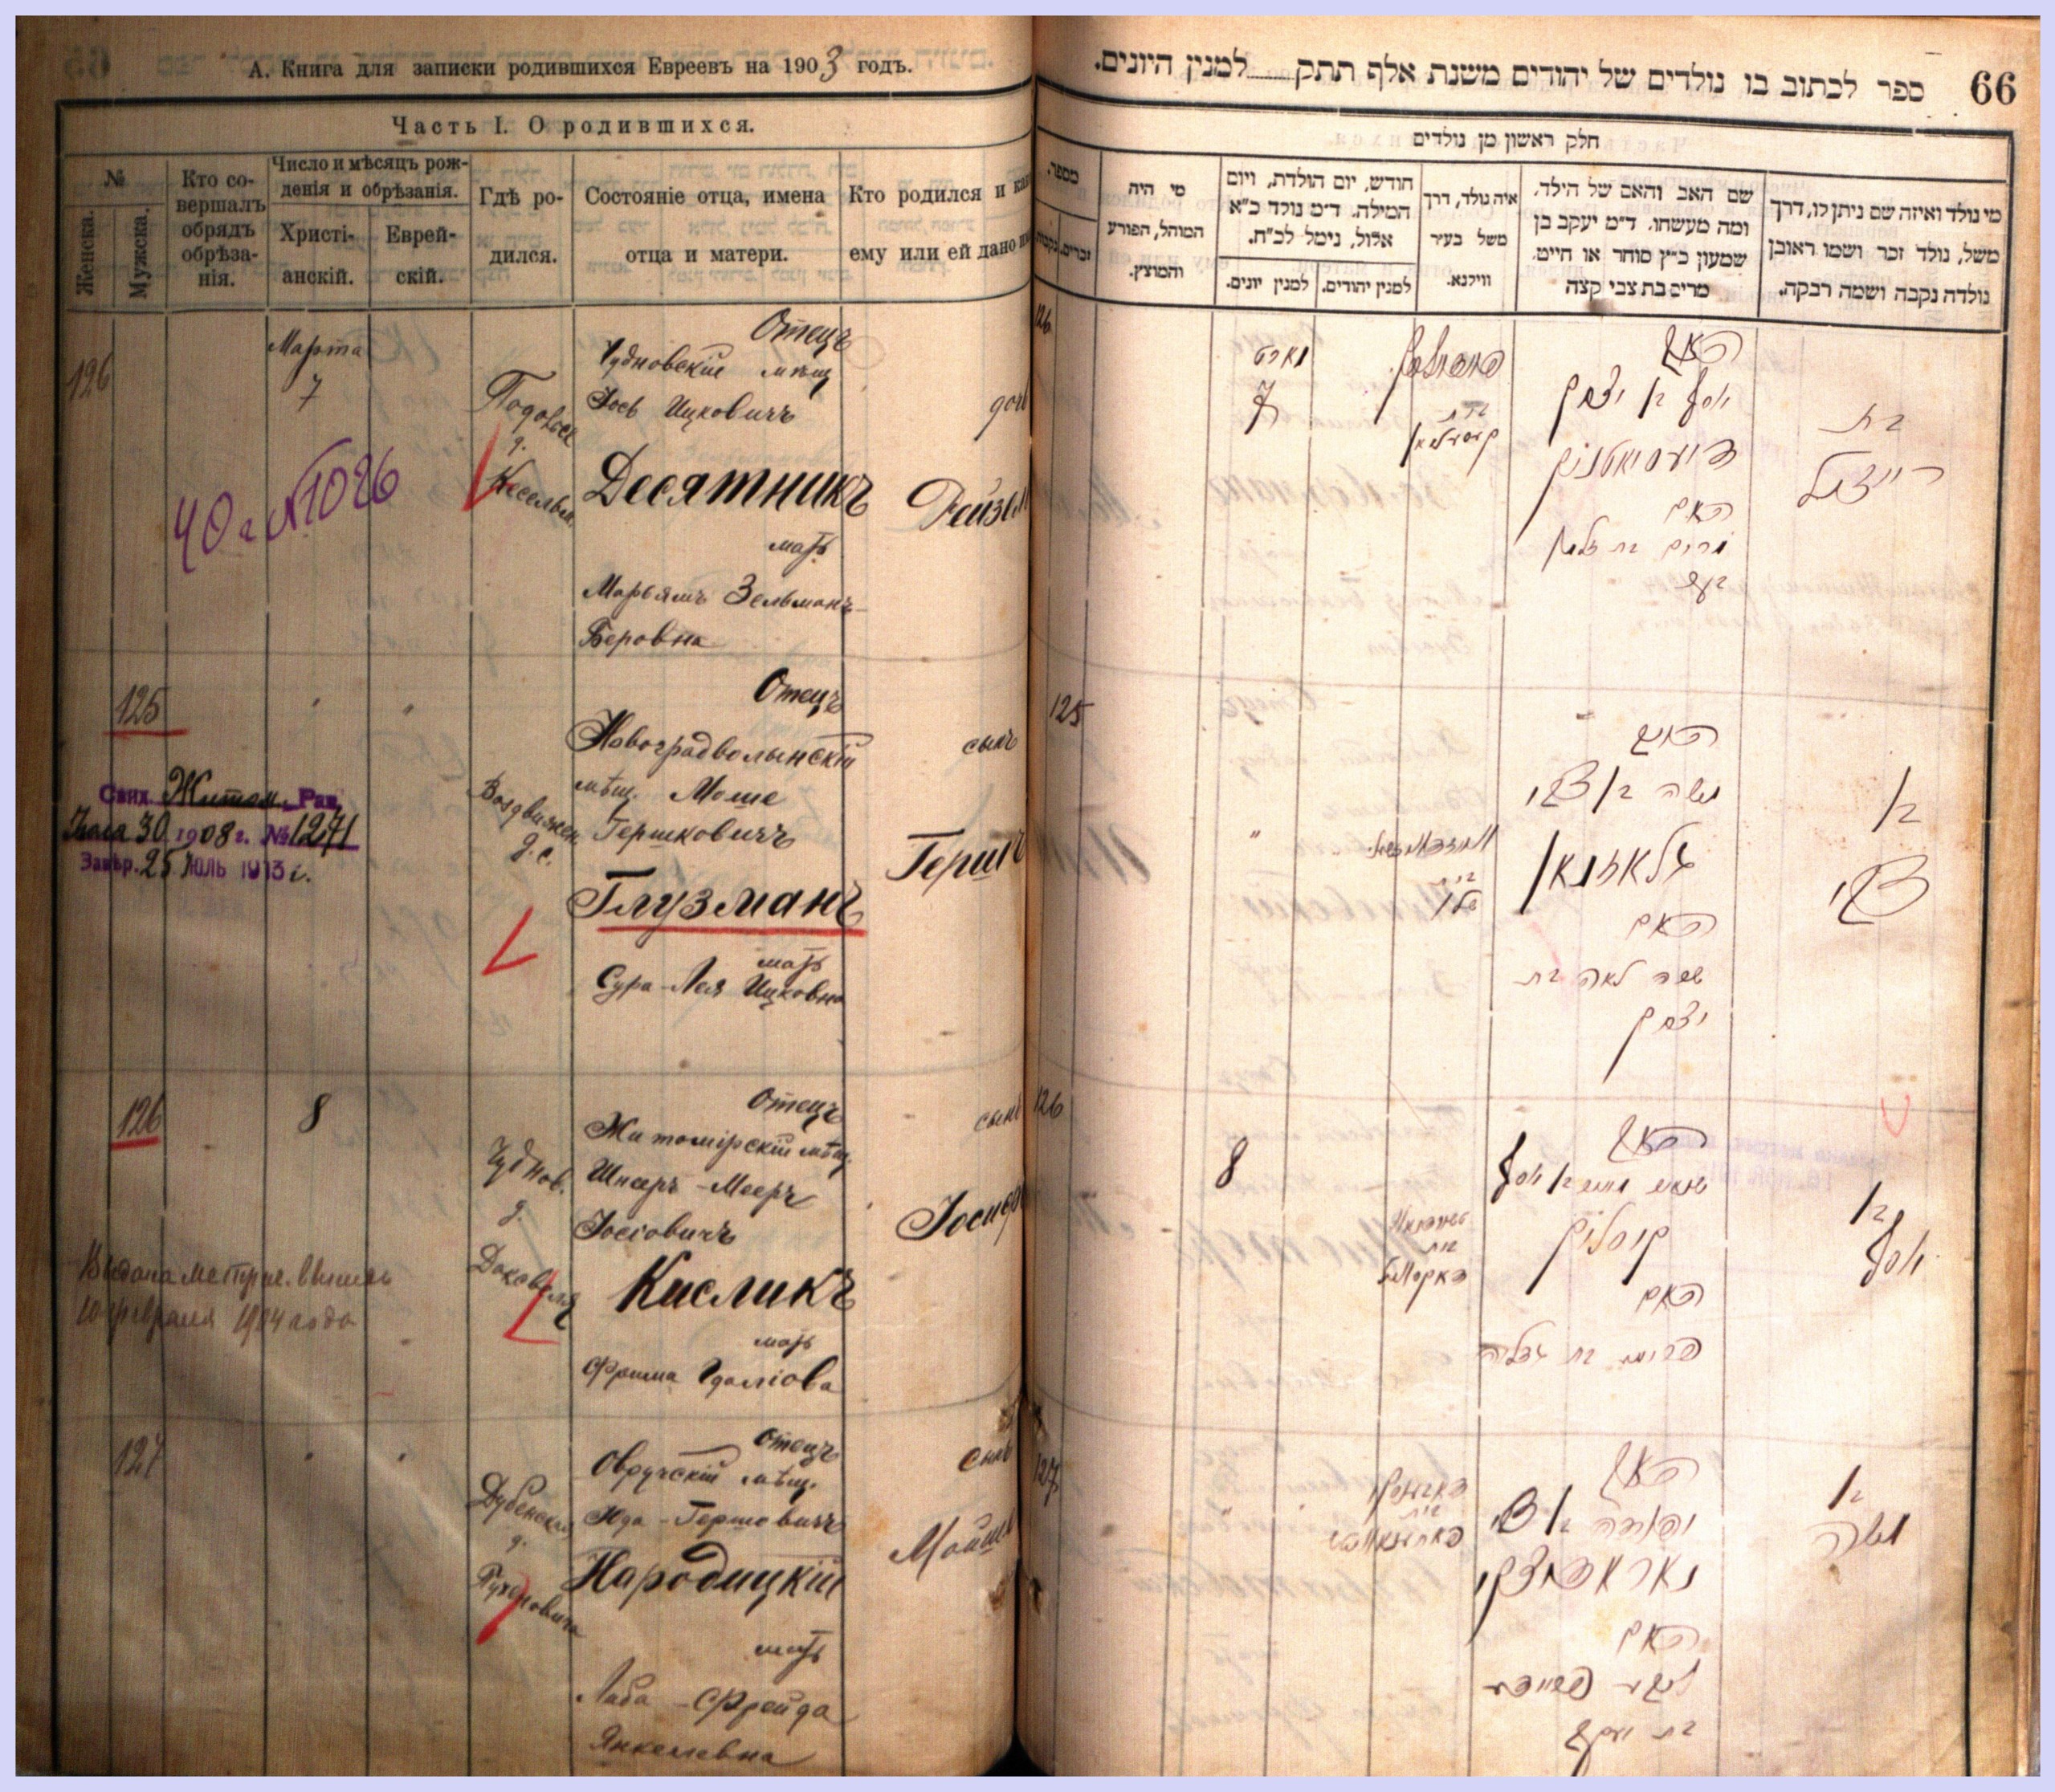 А. Книга для записки родившихся Евреевъ на 1903 годъ.
Часть I. О родившихся.
№
Женска.
Мужска.
Кто со-
вершалъ
обрядъ
обрѣза-
нія.
Число и мѣсяцъ рож-
денія и обрѣзанія.
Христі-
анскій.
Еврей-
скій.
Гдѣ ро-
дился.
Состояніе отца, имена
отца и матери.
Кто родился и
ему или ей дано
126
Марта
7
40 г №1026
Отецъ
Чудновскій мѣщ
Іось Ицковичъ
Десятникъ
мать
Марьямъ Зельманъ-
Беровна
дочь
Рейзя
125
Свид. Житом. Рав.
30 1908 г. №1271
25 ЮЛЬ 1913 г.
Воздвижен.
Отецъ
Новоградволынскій
мѣщ. Моше
Гершковичъ
Глузманъ
мать
Сура-Лея Ицковна
сынъ
Гершъ
126
8
Выдана метрич. выпись
10 февраля 1924 года
Чуднов.
Отецъ
Житомірскій мѣщ.
Шнееръ-Мееръ
Іосіовичъ
Кисликъ
мать
Фрима Гдаліова
сынъ
Іосифъ
127
Дубенская
Отецъ
Овручскій мѣщ.
Юда-Гершовичъ
Народицкій
мать
Либа-Фрейда
Янкелевна
сынъ
Мойше
66
ספר לכתוב בו נולדים של יהודים משנת אלף תתק למנין היונים.
חלק ראשון מן נולדים
מספר.
זכרים.
נקבות.
מי היה
המוהל, הפורע
והמוצץ.
חודש, יום הולדת, ויום
המילה. ד״מ נולד כ״א
אלול, נימל לכ״ח.
למנין יונים.
למנין יהודים.
איה נולד, דרך
משל בעיר
ווילנא.
שם האב והאם של הילד.
ומה מעשהו. ד״מ יעקב בן
שמעון כ״ץ סוחר או חייט.
מרים בת צבי קצה
מי נולד ואיזה שם ניתן לו, דרך
משל, נולד זכר ושמו ראובן
נולדה נקבה ושמה רבקה.
126
מארט
7
האב
יוסף בן יצחק
דעסיאטניק
האם
מרים בת זלמן
בער
בת
רייזל
125
האב
משה בן צבי
גלאזמאן
האם
שרה לאה בת
יצחק
בן
צבי
126
8
האב
שניאור מאיר בן יוסף
קיסליק
האם
פרומא בת גדליה
בן
יוסף
127
האב
יהודה בן צבי
נאראדיצקי
האם
ליבע פריידע
בת יעקב
בן
משה